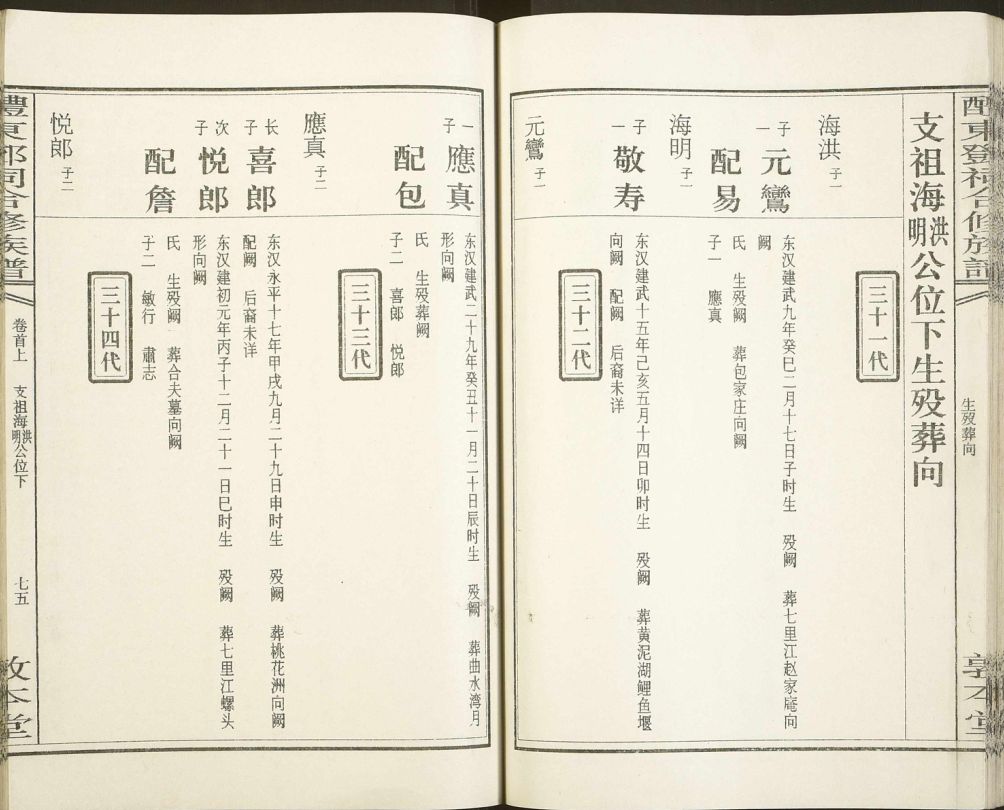 醴東鄧祠合修族譜
生歿葬向
敦本堂
支祖海洪明公位下生歿葬向
三十一代
海洪 子一
子一 元鸞 东汉建武九年癸巳二月十七日子时生 歿阙 葬七里江赵家庵向
阙
配易 氏 生歿阙 葬包家庄向阙
子一 應真
海明 子一
子一 敬寿 东汉建武十五年己亥五月十四日卯时生 歿阙 葬黄泥湖鲤鱼堰
向阙 配阙 后裔未详
三十二代
元鸞 子一
一子 應真 东汉建武二十九年癸丑十一月二十日辰时生 歿阙 葬曲水湾月
形向阙
配包 氏 生歿葬阙
子二 喜郎 悦郎
三十三代
應真 子二
长子 喜郎 东汉永平十七年甲戌九月二十九日申时生 歿阙 葬桃花洲向阙
配阙 后裔未详
次子 悦郎 东汉建初元年丙子十二月二十一日巳时生 歿阙 葬七里江螺头
形向阙
配詹 氏 生歿阙 葬合夫墓向阙
子二 敏行 肅志
三十四代
悦郎 子二
醴東鄧祠合修族譜
卷首上 支祖海洪明公位下
七五
敦本堂